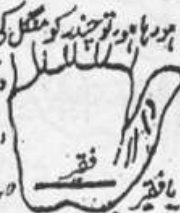 ہو رہا ہو، تو چندر کو منگل کی
فقر
یا فقیر